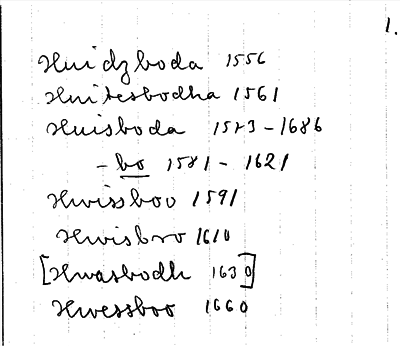 1.
Huidzboda 1556
Huitesbodha 1561
Huisboda 1573-1686
-bo 1581-1621
Hwissboo 1591
Hwisbro 1610
[Hwasbodh 1630]
Hwessboo 1660